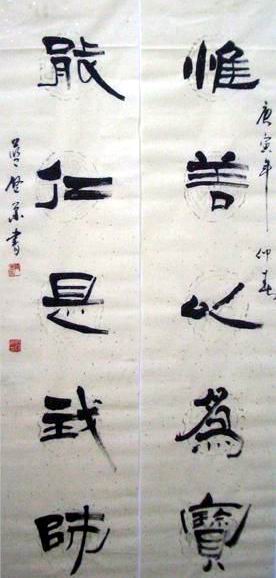 庚寅年仲春
惟善以為寶
能仁是我師
書